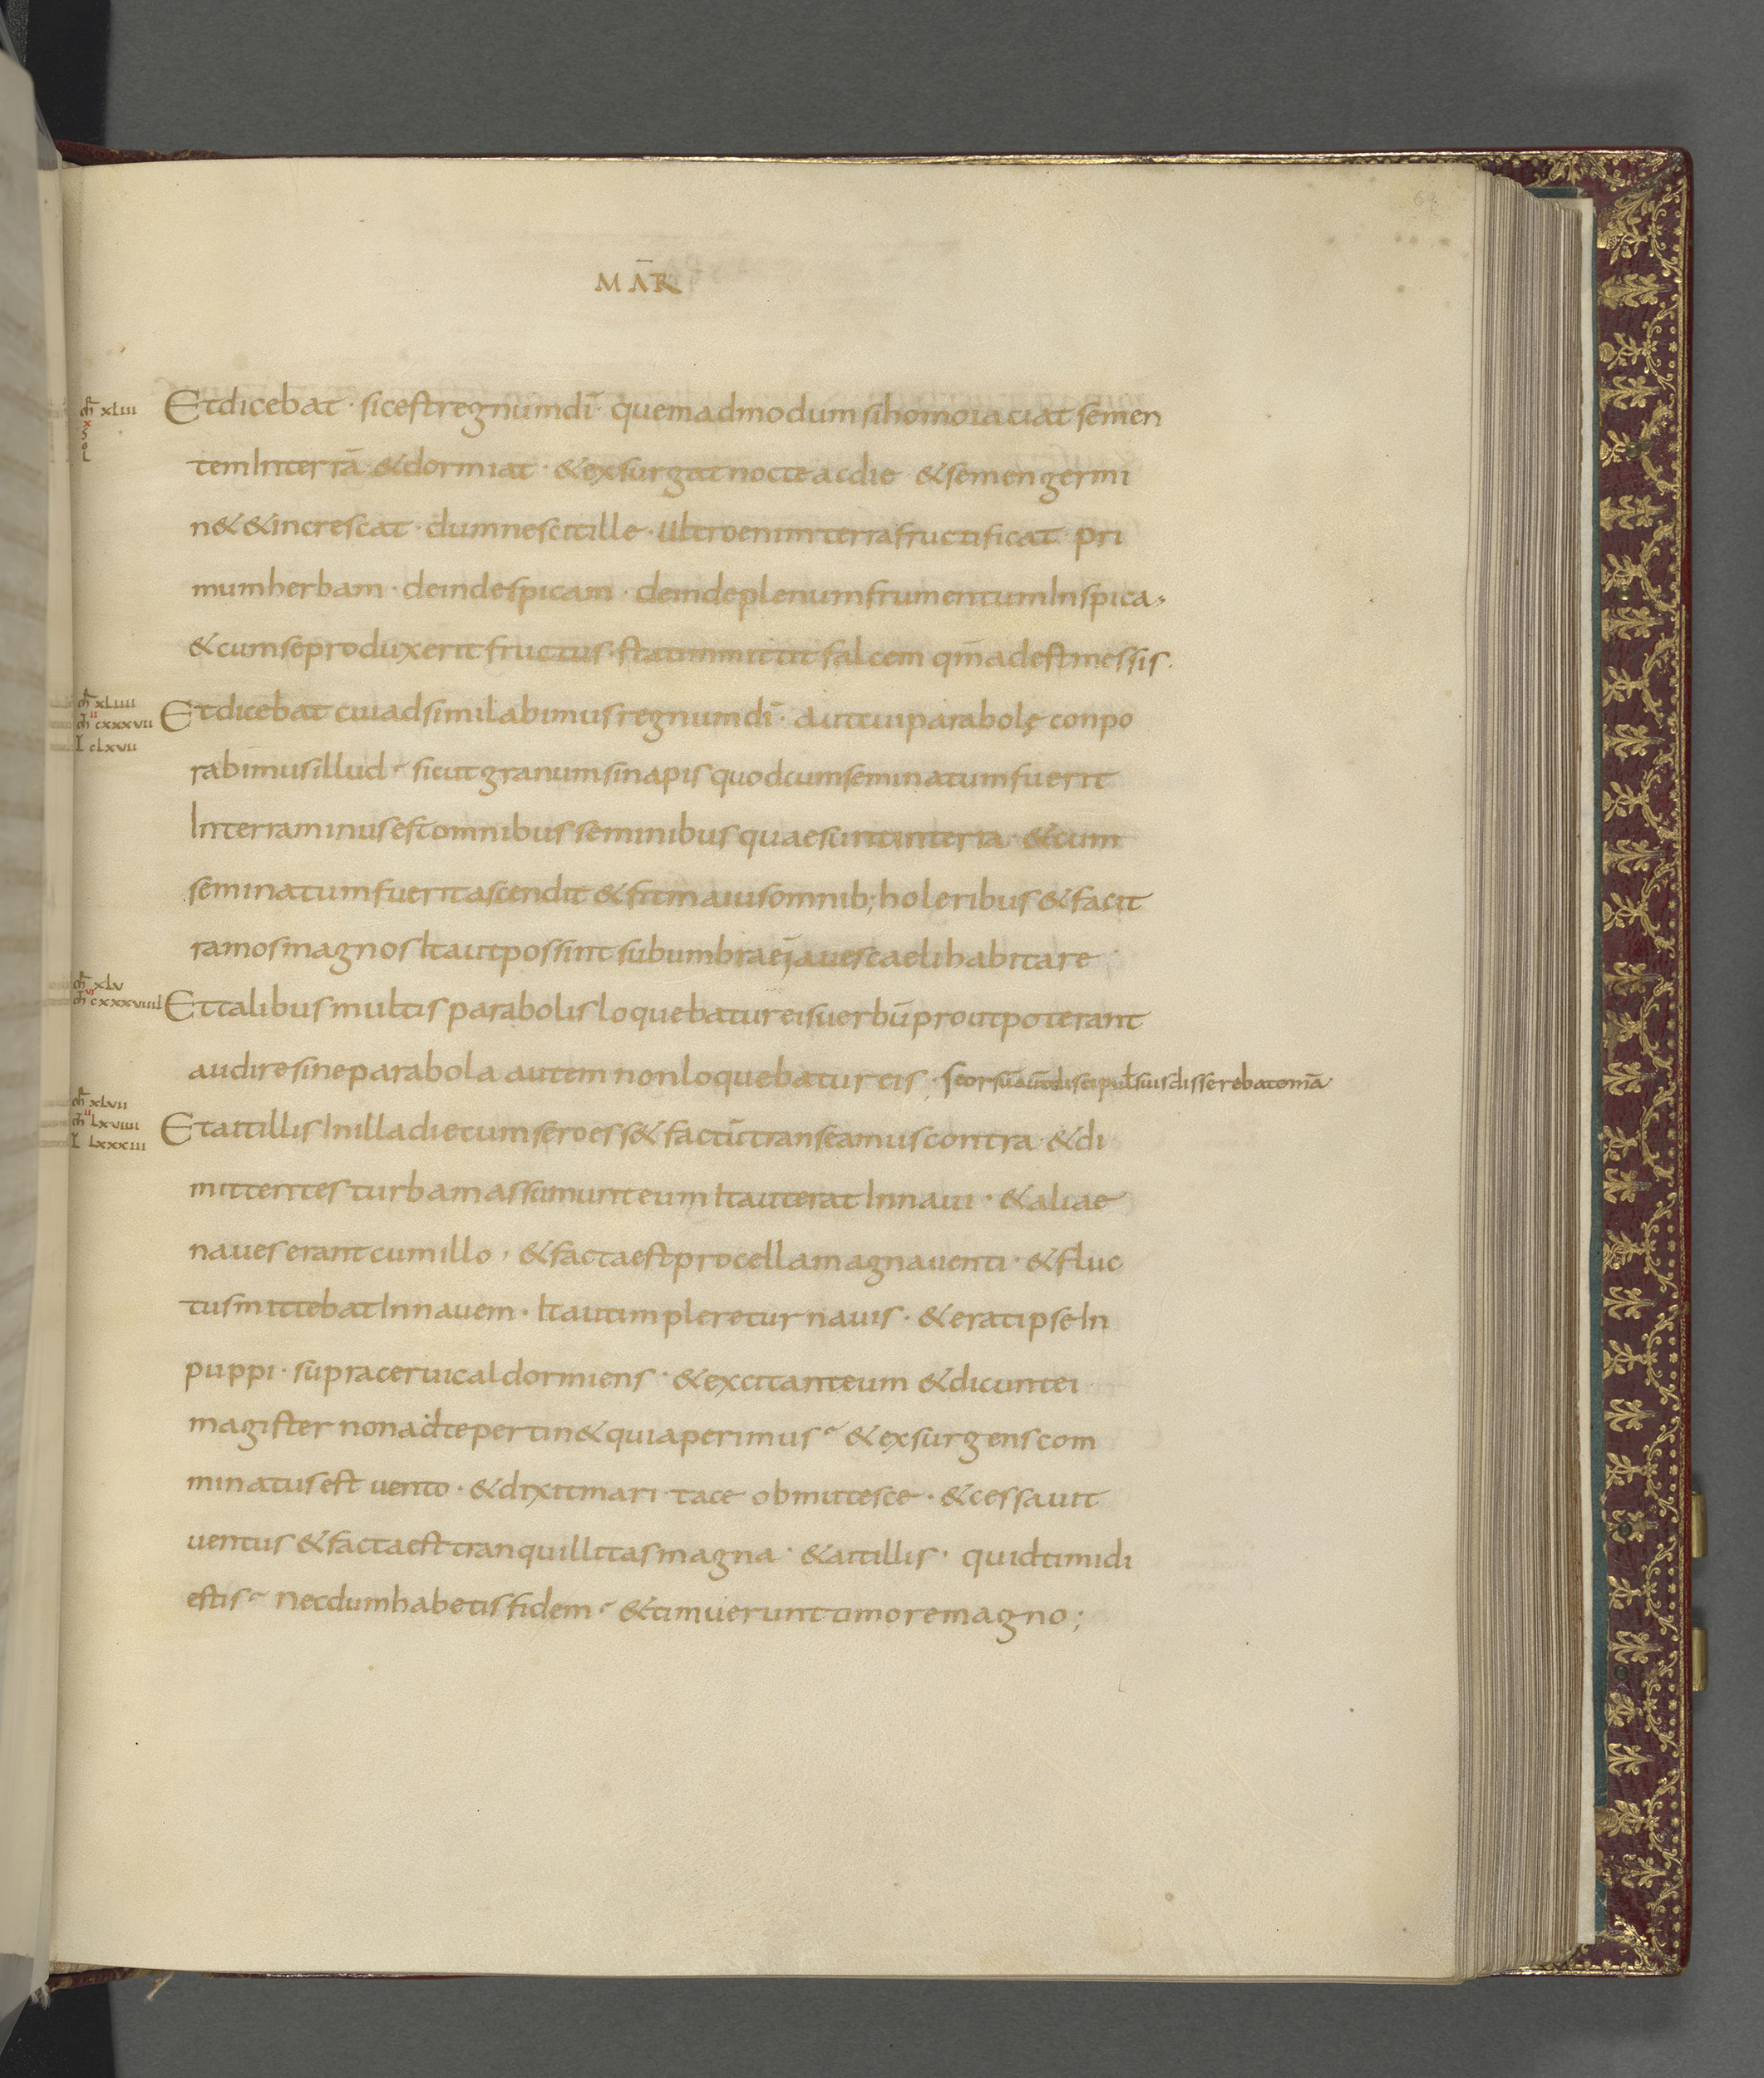 64
MAR̄
m̄ xLIII
x
S
o
L
Et dicebat · sic est regnum dī · quemadmodum si homo iaciat semen
tem In terrā · & dormiat · & exsurgat nocte ac die & semen germi
n& & increscat · dum nescit ille · Ultro enim terra fructificat · pri
mum herbam · deinde spicam · deinde plenum frumentum In spica ·
& cum se produxerit fructus · statim mittit falcem qm̄ adest messis ·
m̄ xLIIII
m̄ cxxxvII
L cLxvII
Et dicebat cui adsimilabimus regnum dī · aut cui parabolę conpo
rabimus illud · sicut granum sinapis quod cum seminatum fuerit
In terra minus est omnibus seminibus quae sunt in terra · & cum
seminatum fuerit ascendit & fit maius omnib; holeribus & facit
ramos magnos Ita ut possint sub umbra ej aues caeli habitare
m̄ xLv
m̄ cxxxvIIII
Et talibus multis parabolis loquebatur eis uerbū prout poterant
audire sine parabola autem non loquebatur eis · seorsū aut̄ discipulis suis disserebat omīa
m̄ xLvII
m̄ LxvIIII
L LxxxIII
Et ait illis In illa die cum sero ess& factū transeamus contra · & di
mittentes turbam assumunt eum Ita ut erat In naui · & aliae
naues erant cum illo · & facta est procella magna uenti · & fluc
tus mittebat In nauem · Ita ut impleretur nauis · & erat ipse In
puppi · supra ceruical dormiens · & excitant eum & dicunt ei
magister non ad te pertin& quia perimus · & exsurgens com
minatus est uento · & dixit mari tace obmutesce · & cessauit
uentus & facta est tranquillitas magna · & ait illis · quid timidi
estis · necdum habetis fidem · & timuerunt timore magno ;